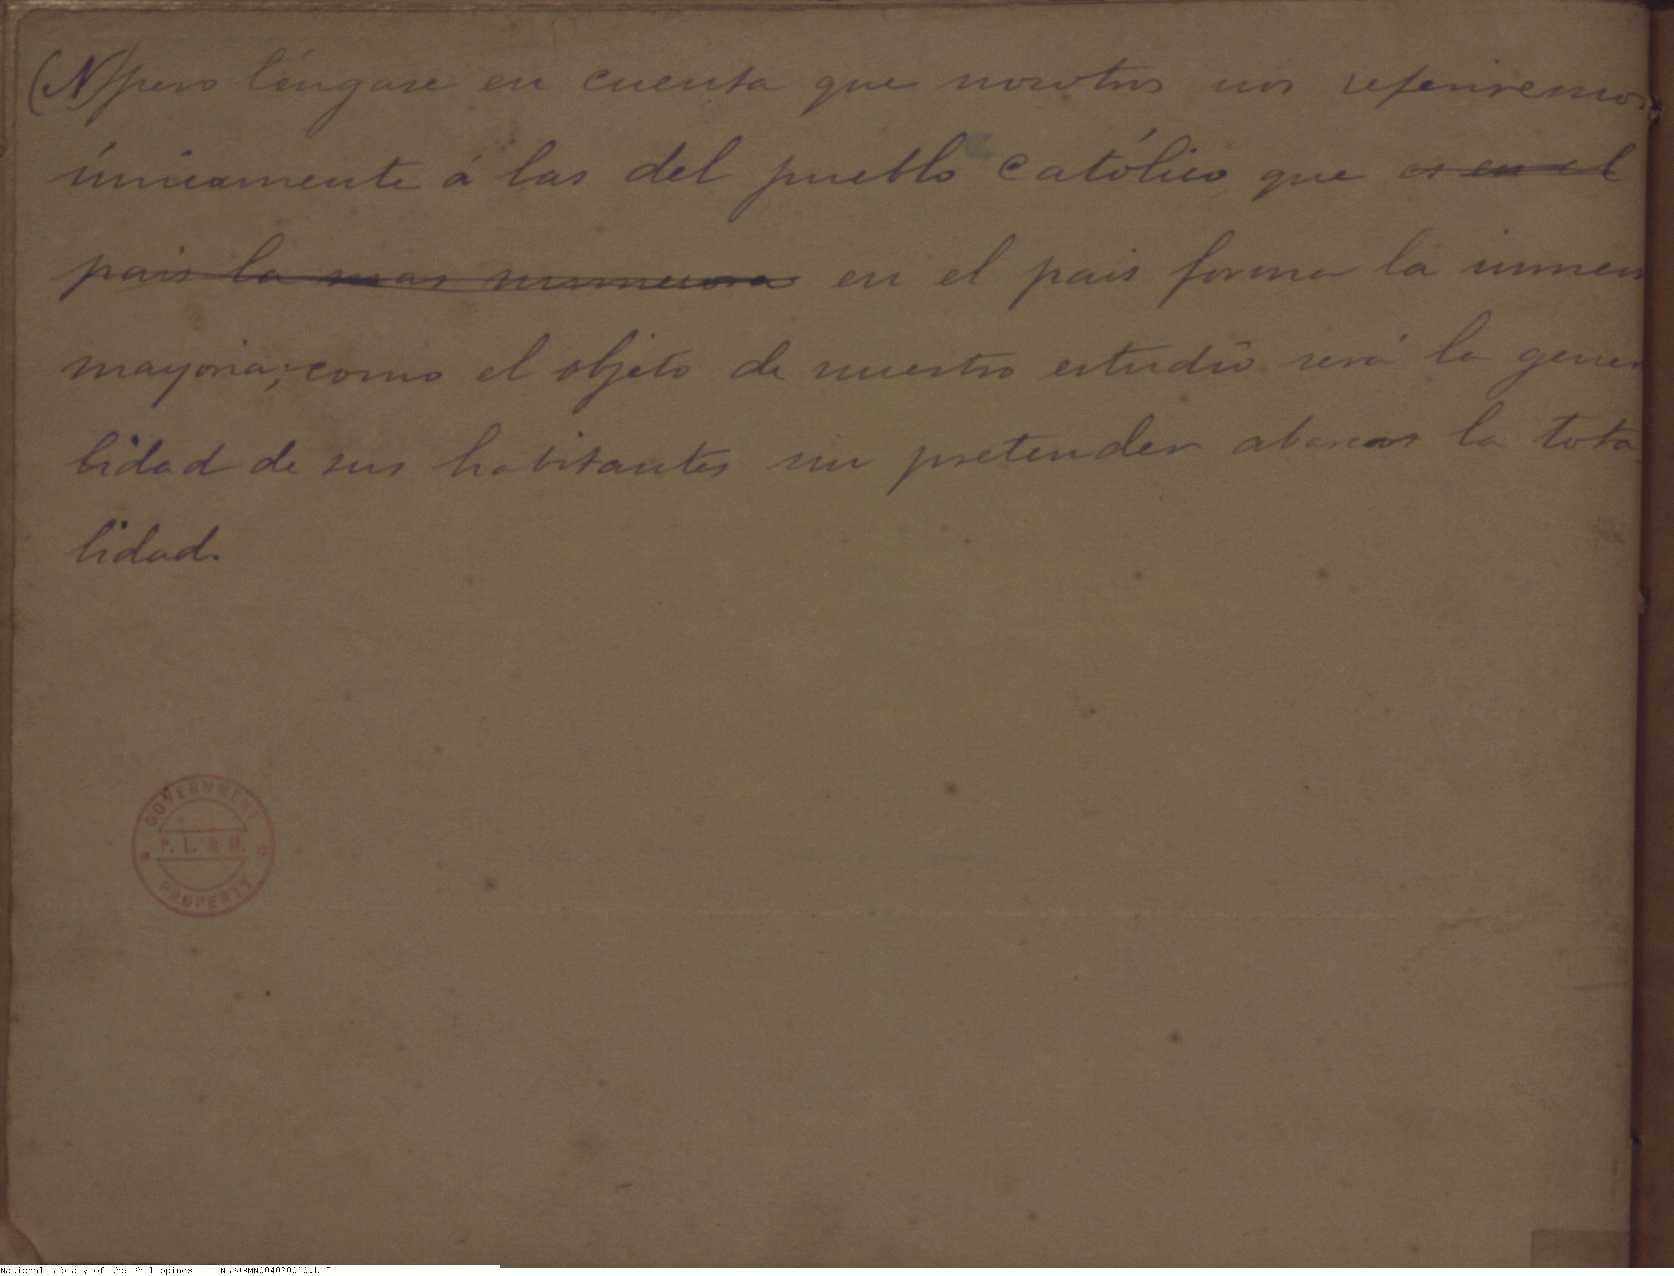 (N) pero téngase en cuenta que nosotros nos referiremos
únicamente á las del pueblo católico que es en el
pais la mas numerosa en el pais forma la inmen
mayoria; como el objeto de nuestro estudio será la gener
lidad de sus habitantes sin pretender abarcar la tota
lidad.
GOVERNMENT
P. L. & M.
PROPERTY
National Library of the Philippines